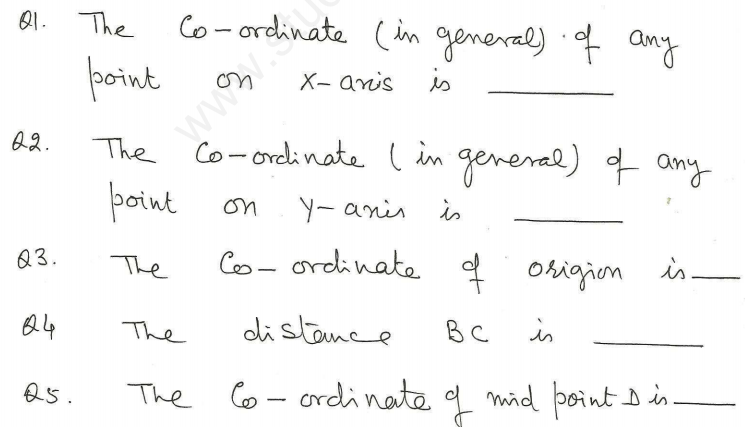 Q1. The Co-ordinate (in general) of any
point on X-axis is ______
Q2. The Co-ordinate (in general) of any
point on Y-axis is ______
Q3. The Coo-ordinate of origion is ___
Q4 The distance BC is ______
Q5. The Co-ordinate of mid point D is ___
www.stu